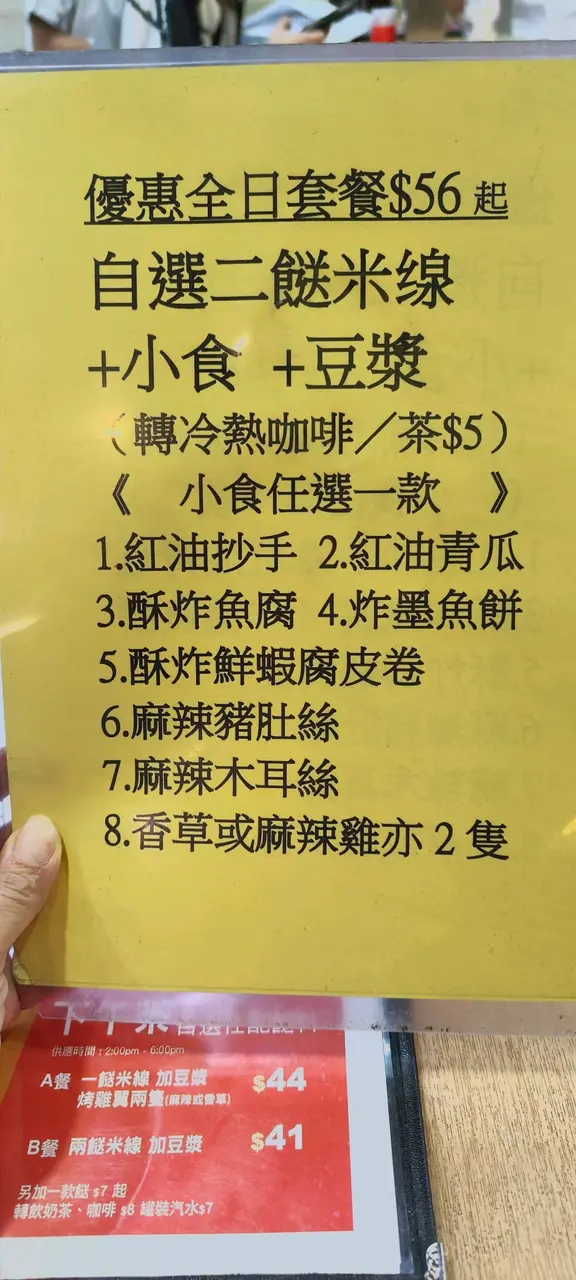 優惠全日套餐$56起
自選二餸米线
+小食 +豆漿
（轉冷熱咖啡／茶$5）
《 小食任選一款 》
1.紅油抄手 2.紅油青瓜
3.酥炸魚腐 4.炸墨魚餅
5.酥炸鮮蝦腐皮卷
6.麻辣豬肚絲
7.麻辣木耳絲
8.香草或麻辣雞亦2隻
供應時間：2:00pm - 6:00pm
A餐 一餸米線 加豆漿 $44
烤雞翼兩隻(麻辣或香草)
B餐 兩餸米線 加豆漿 $41
另加一款餸 $7 起
轉飲奶茶、咖啡 $8 罐裝汽水$7